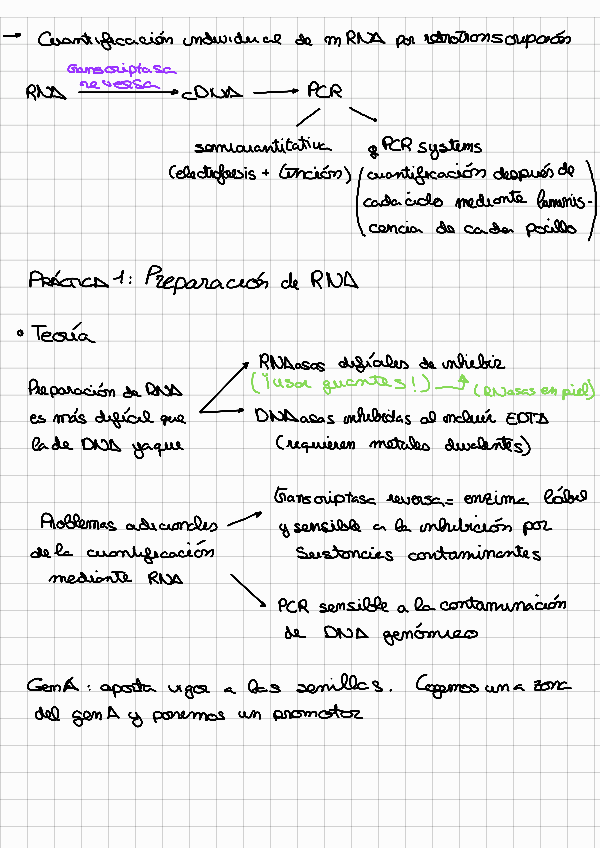 → Cuantificación individual de mRNA por retrotranscripción
transcriptasa
reversa
RNA → cDNA → PCR
semicuantitativa
(electroforesis + tinción)
q PCR systems
(cuantificación después de
cada ciclo mediante luminis-
cencia de cada pocillo)
PRÁCTICA 1: Preparación de RNA
• Teoría
RNAasas difíciles de inhibir
(¡usar guantes!) → (RNasas en piel)
Preparación de RNA
es más difícil que
la de DNA ya que
DNAasas inhibidas al incluir EDTA
(requieren metales divalentes)
Problemas adicionales
de la cuantificación
mediante RNA
transcriptasa reversa = enzima lábil
y sensible a la inhibición por
sustancias contaminantes
PCR sensible a la contaminación
de DNA genómico
GenA: aporta vigor a las semillas. Cogemos una zona
del genA y ponemos un promotor